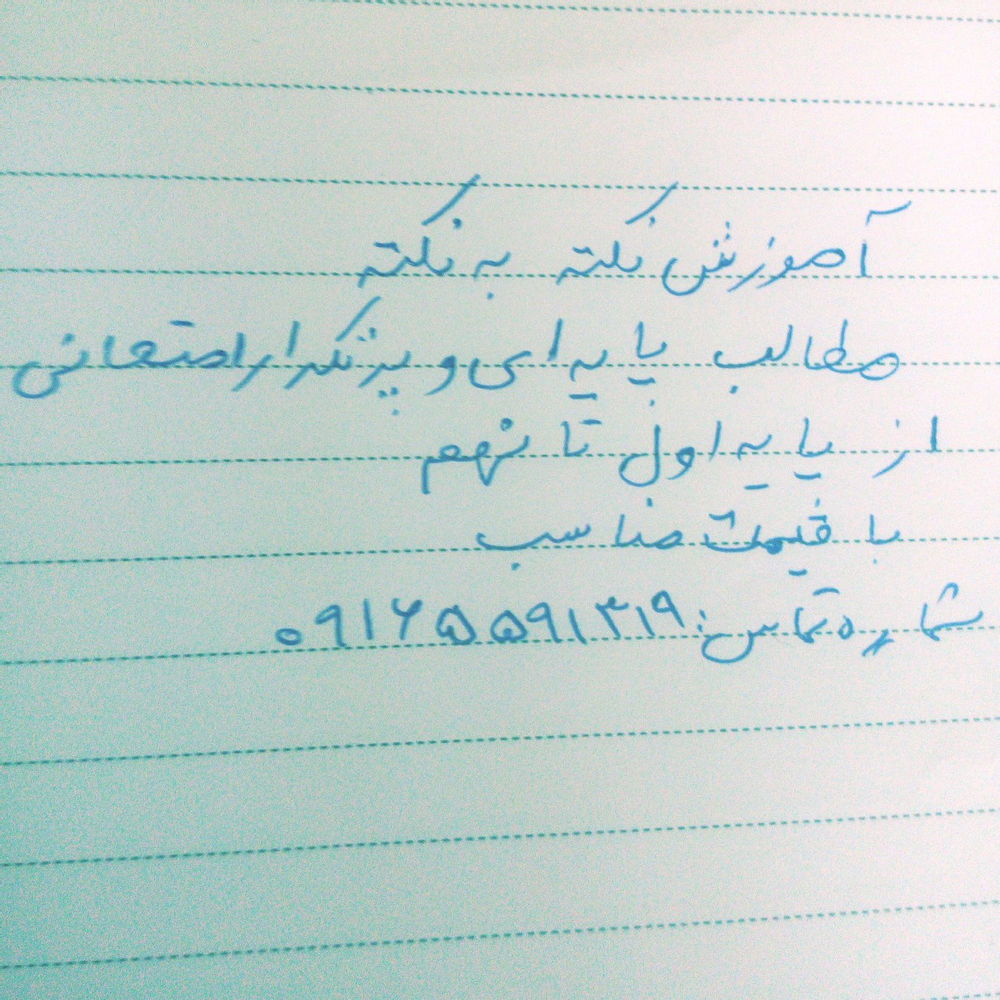 آموزش نکته به نکته
مطالب پایه ای و پرتکرار امتحانی
از پایه اول تا نهم
با قیمت مناسب
شماره تماس: ۰۹۱۶۵۵۹۱۳۱۹